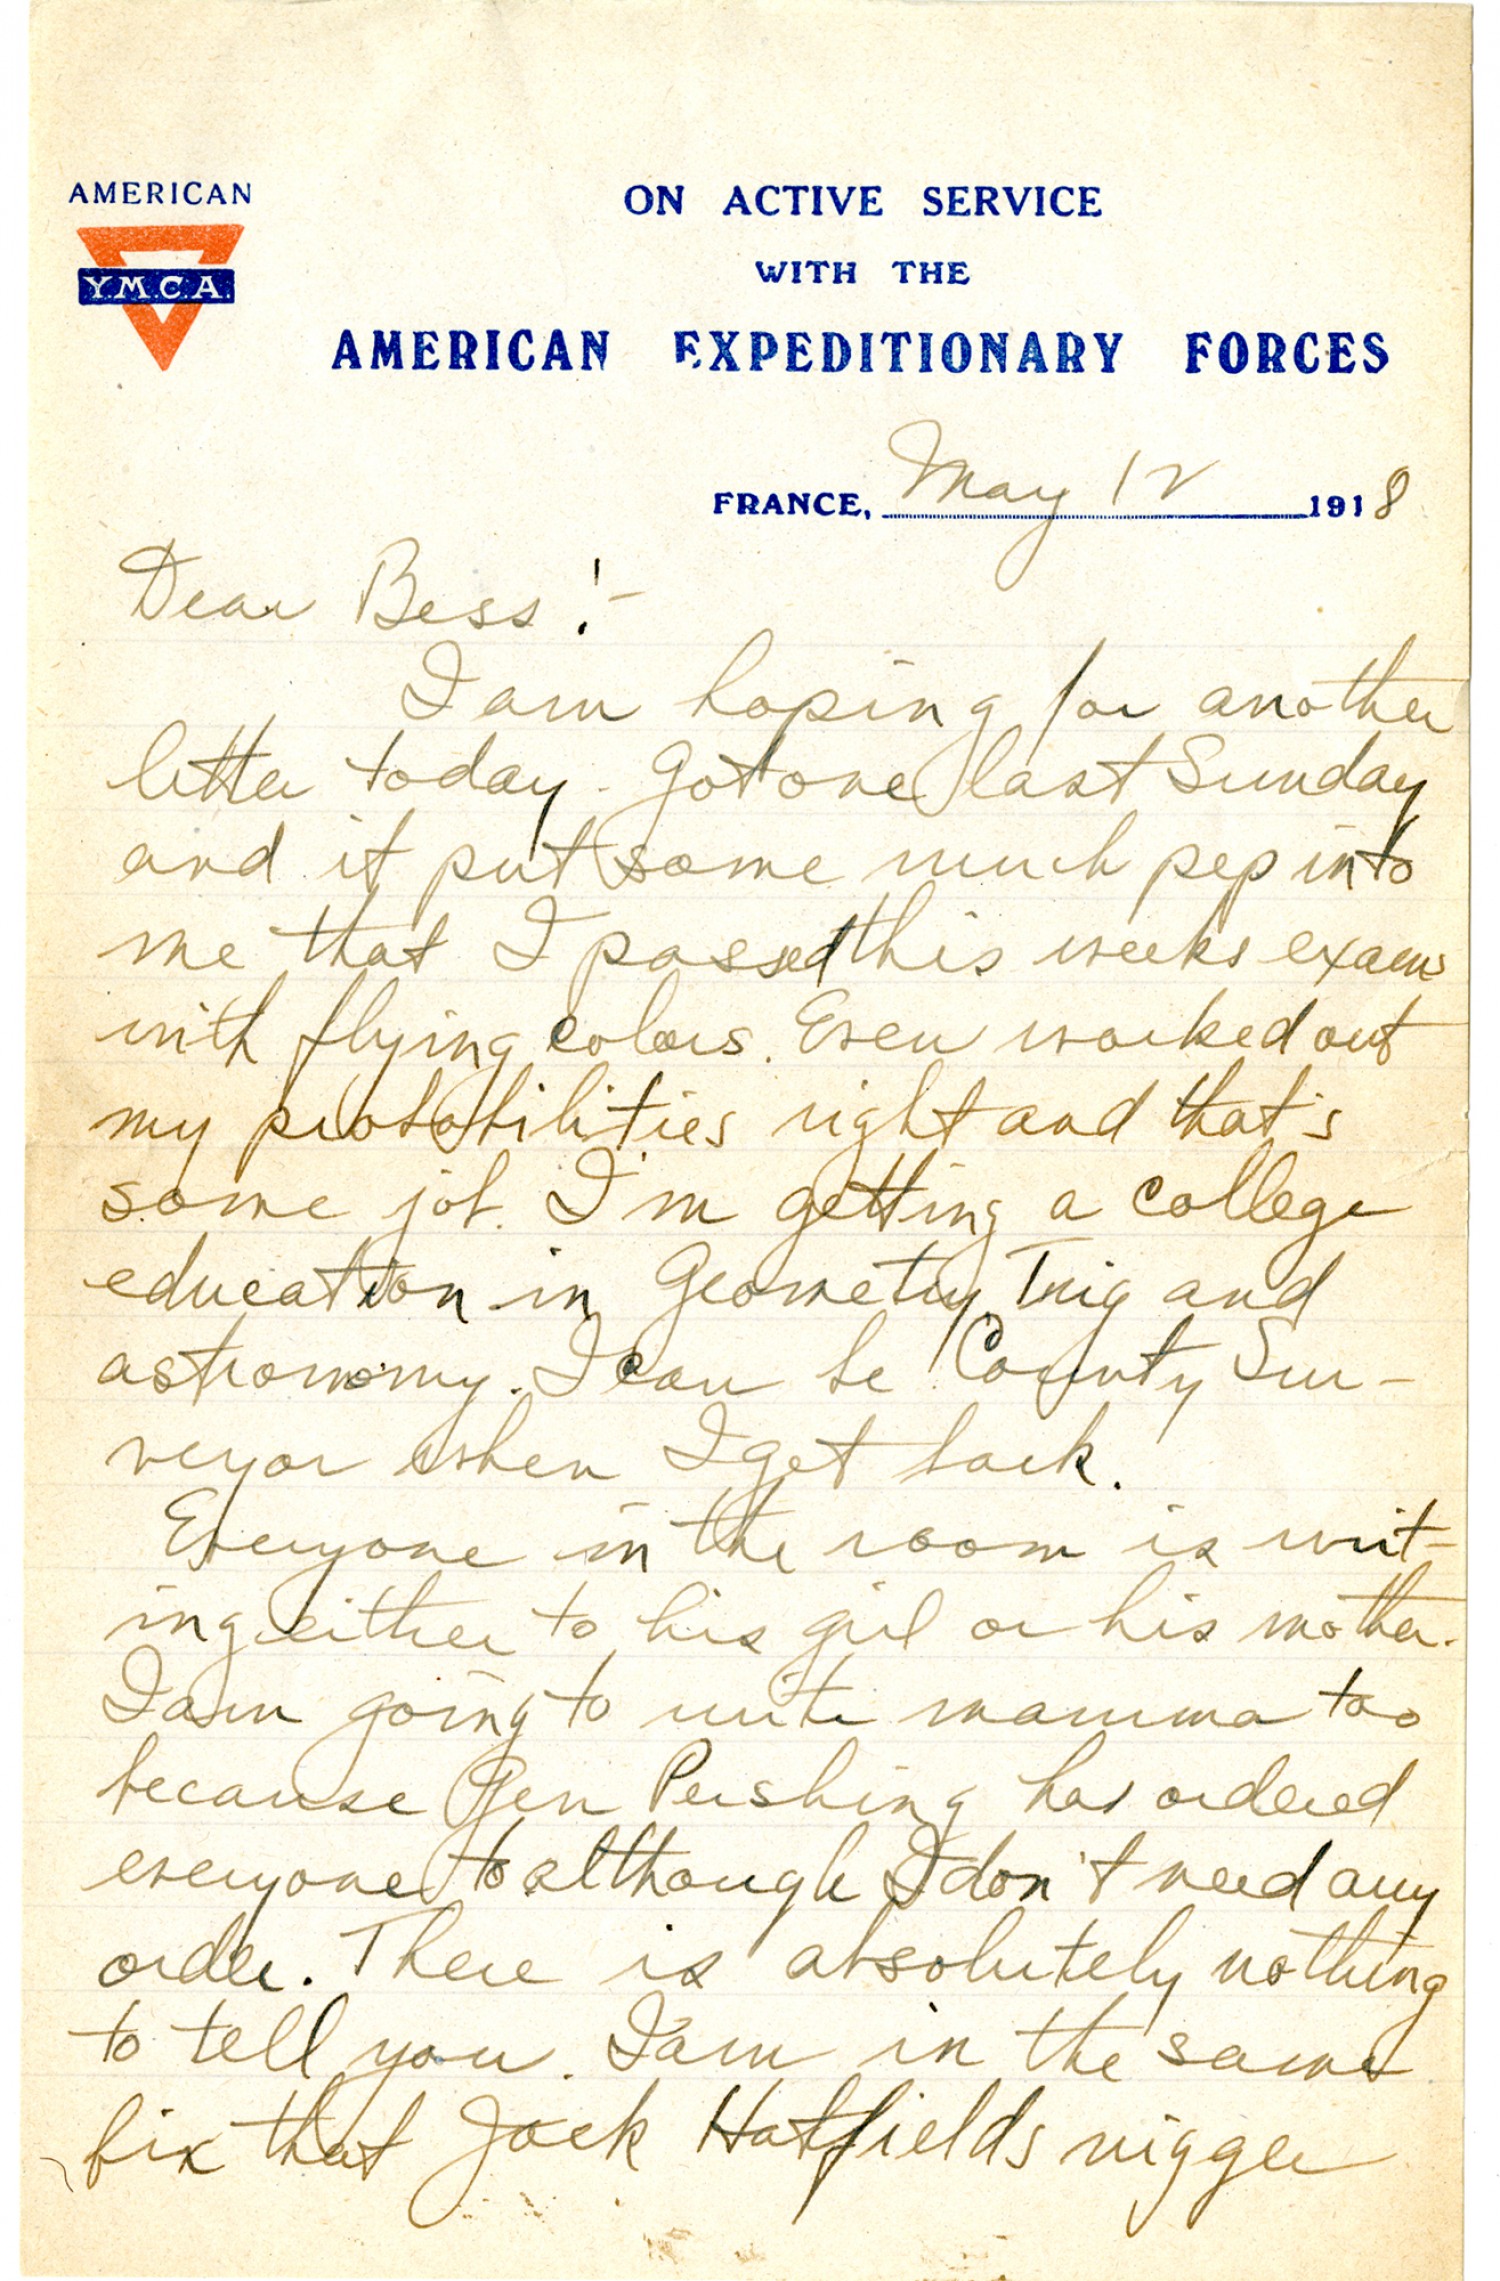 AMERICAN
Y.M.C.A.
ON ACTIVE SERVICE
WITH THE
AMERICAN EXPEDITIONARY FORCES
FRANCE, May 12 1918
Dear Bess:-
I am hoping for another
letter today. Got one last Sunday
and it put some much pep into
me that I passed this weeks exams
with flying colors. Even worked out
my probabilities right and that's
some job. I'm getting a college
education in Geometry, Trig and
astronomy. I can be County Sur-
veyor when I get back.
Everyone in the room is writ-
ing either to his girl or his mother.
I am going to write mamma too
because Gen Pershing has ordered
everyone to although I don't need any
order. There is absolutely nothing
to tell you. I am in the same
fix that Jack Hatfields nigger